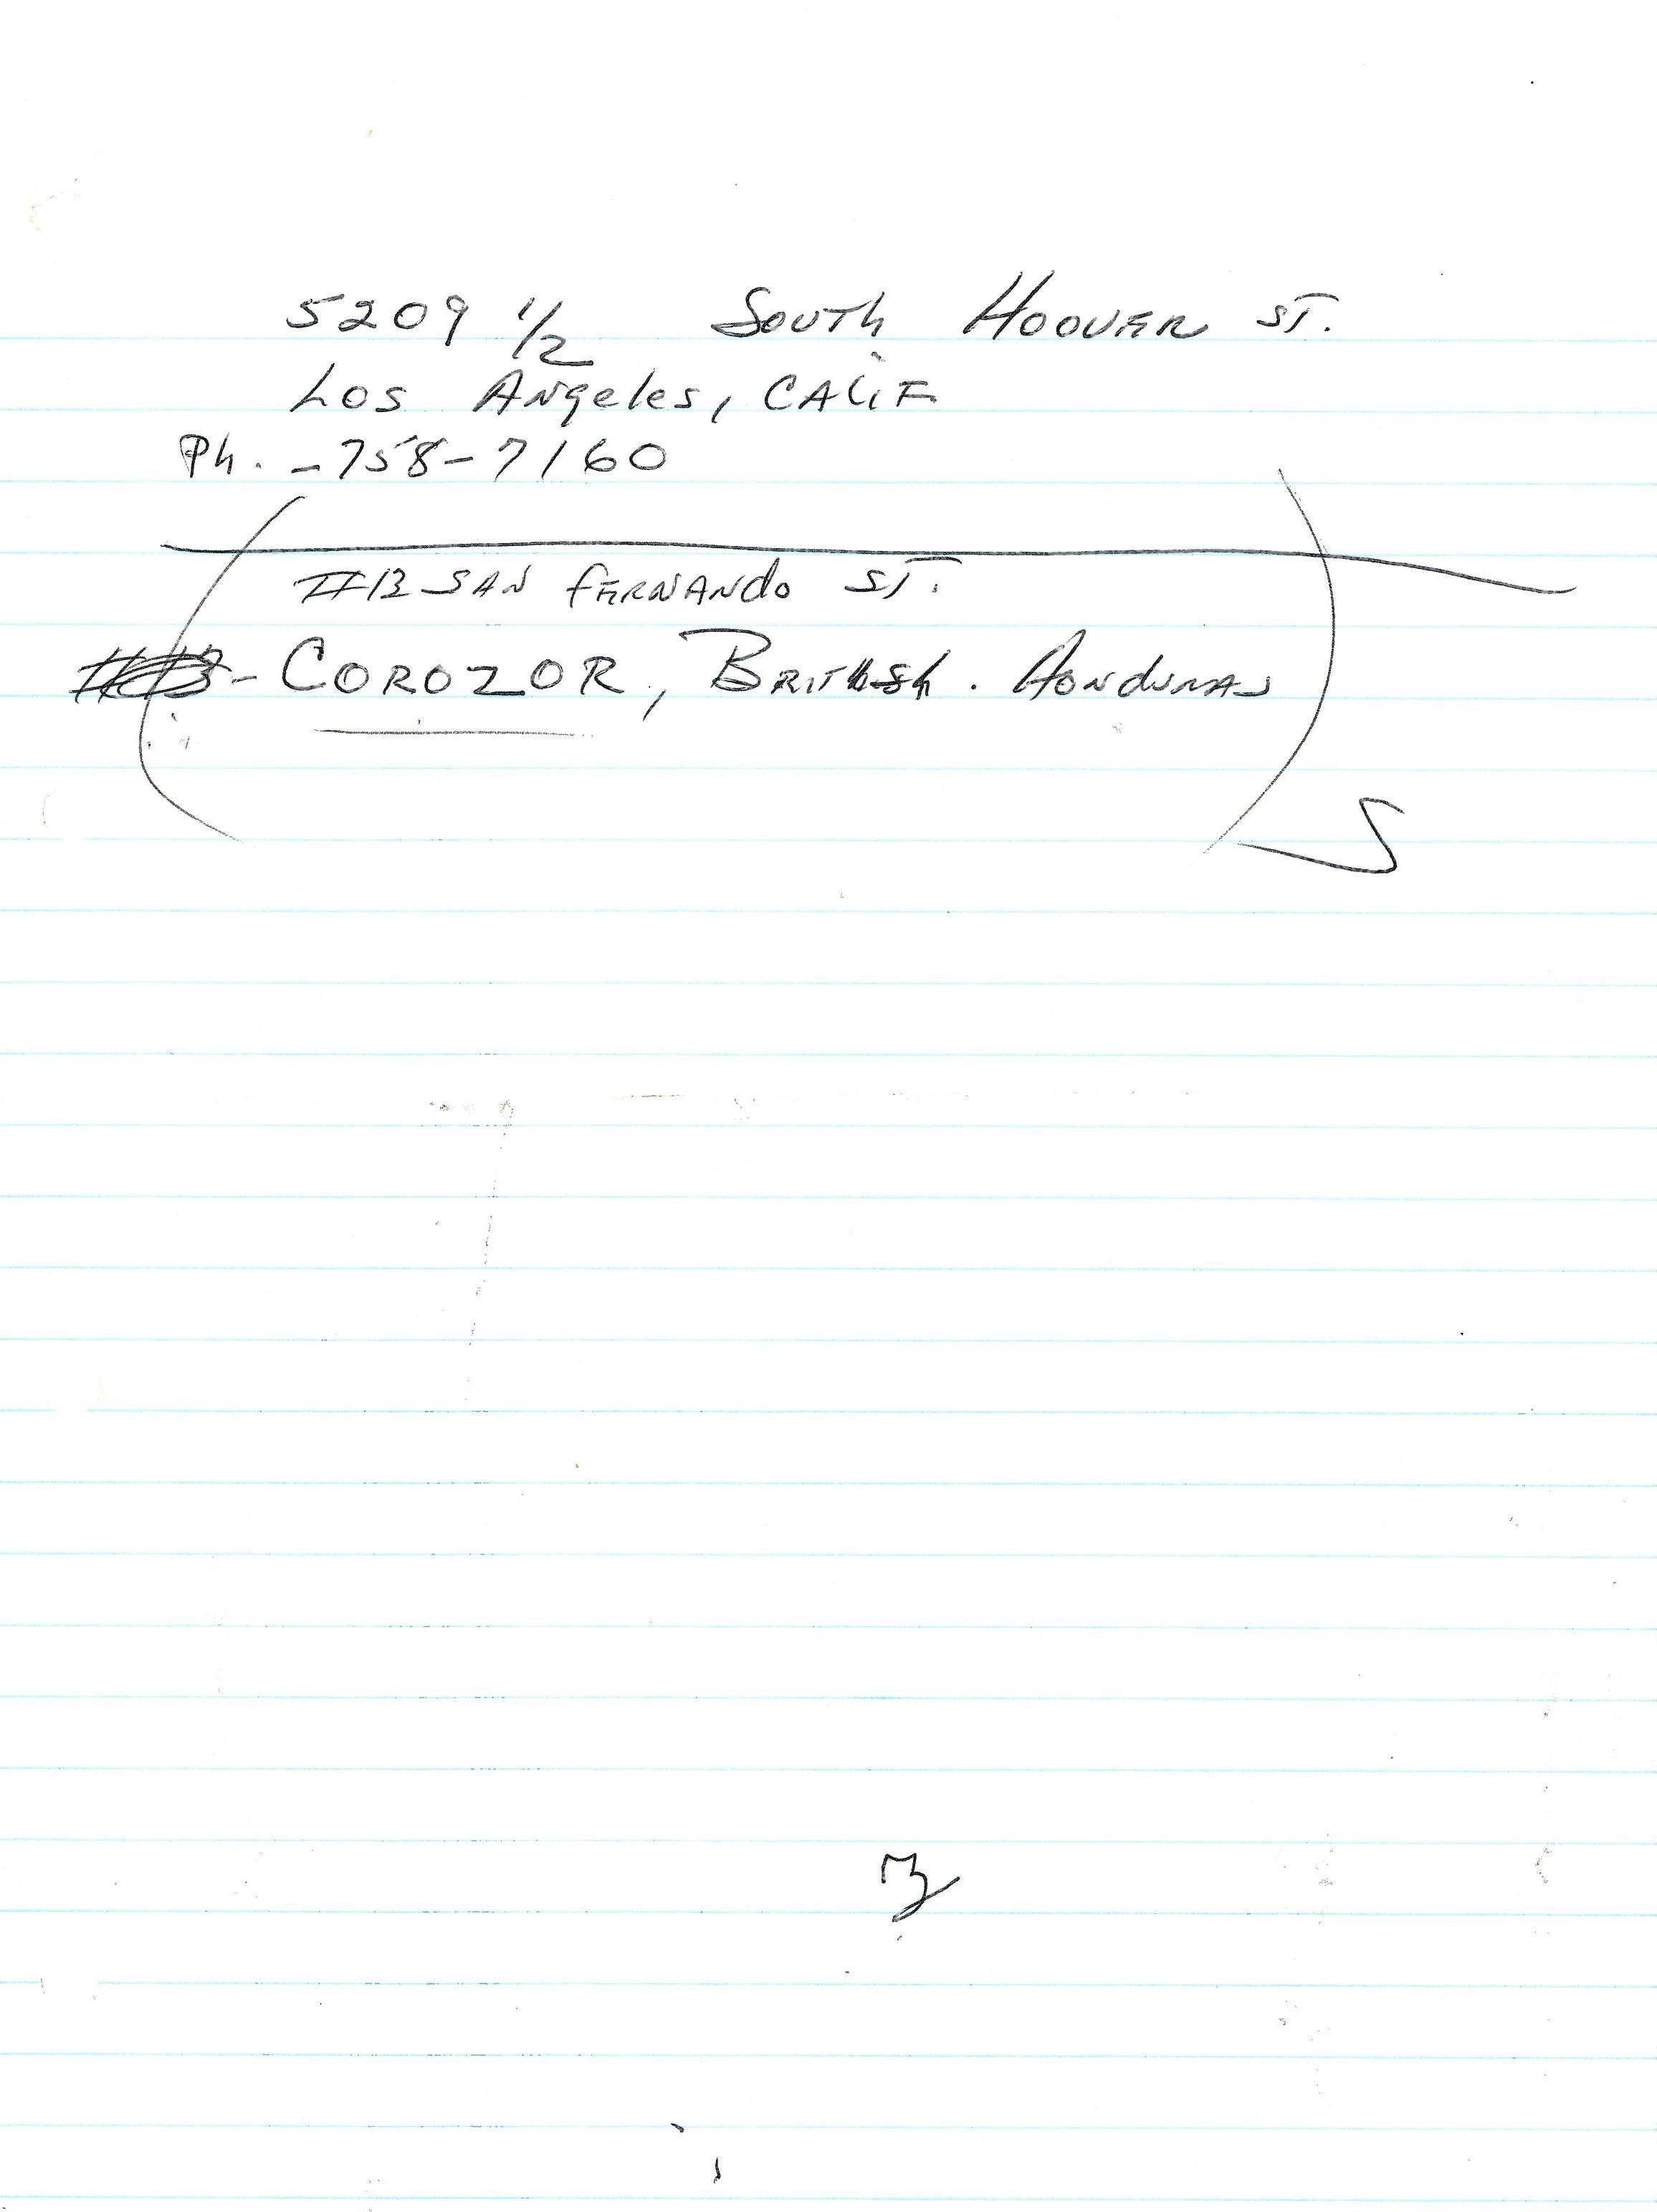 5209 1/2 South Hoover St.
Los Angeles, Calif
Ph. - 758-7160
#13 San Fernando St.
- Corozor, British. Honduras